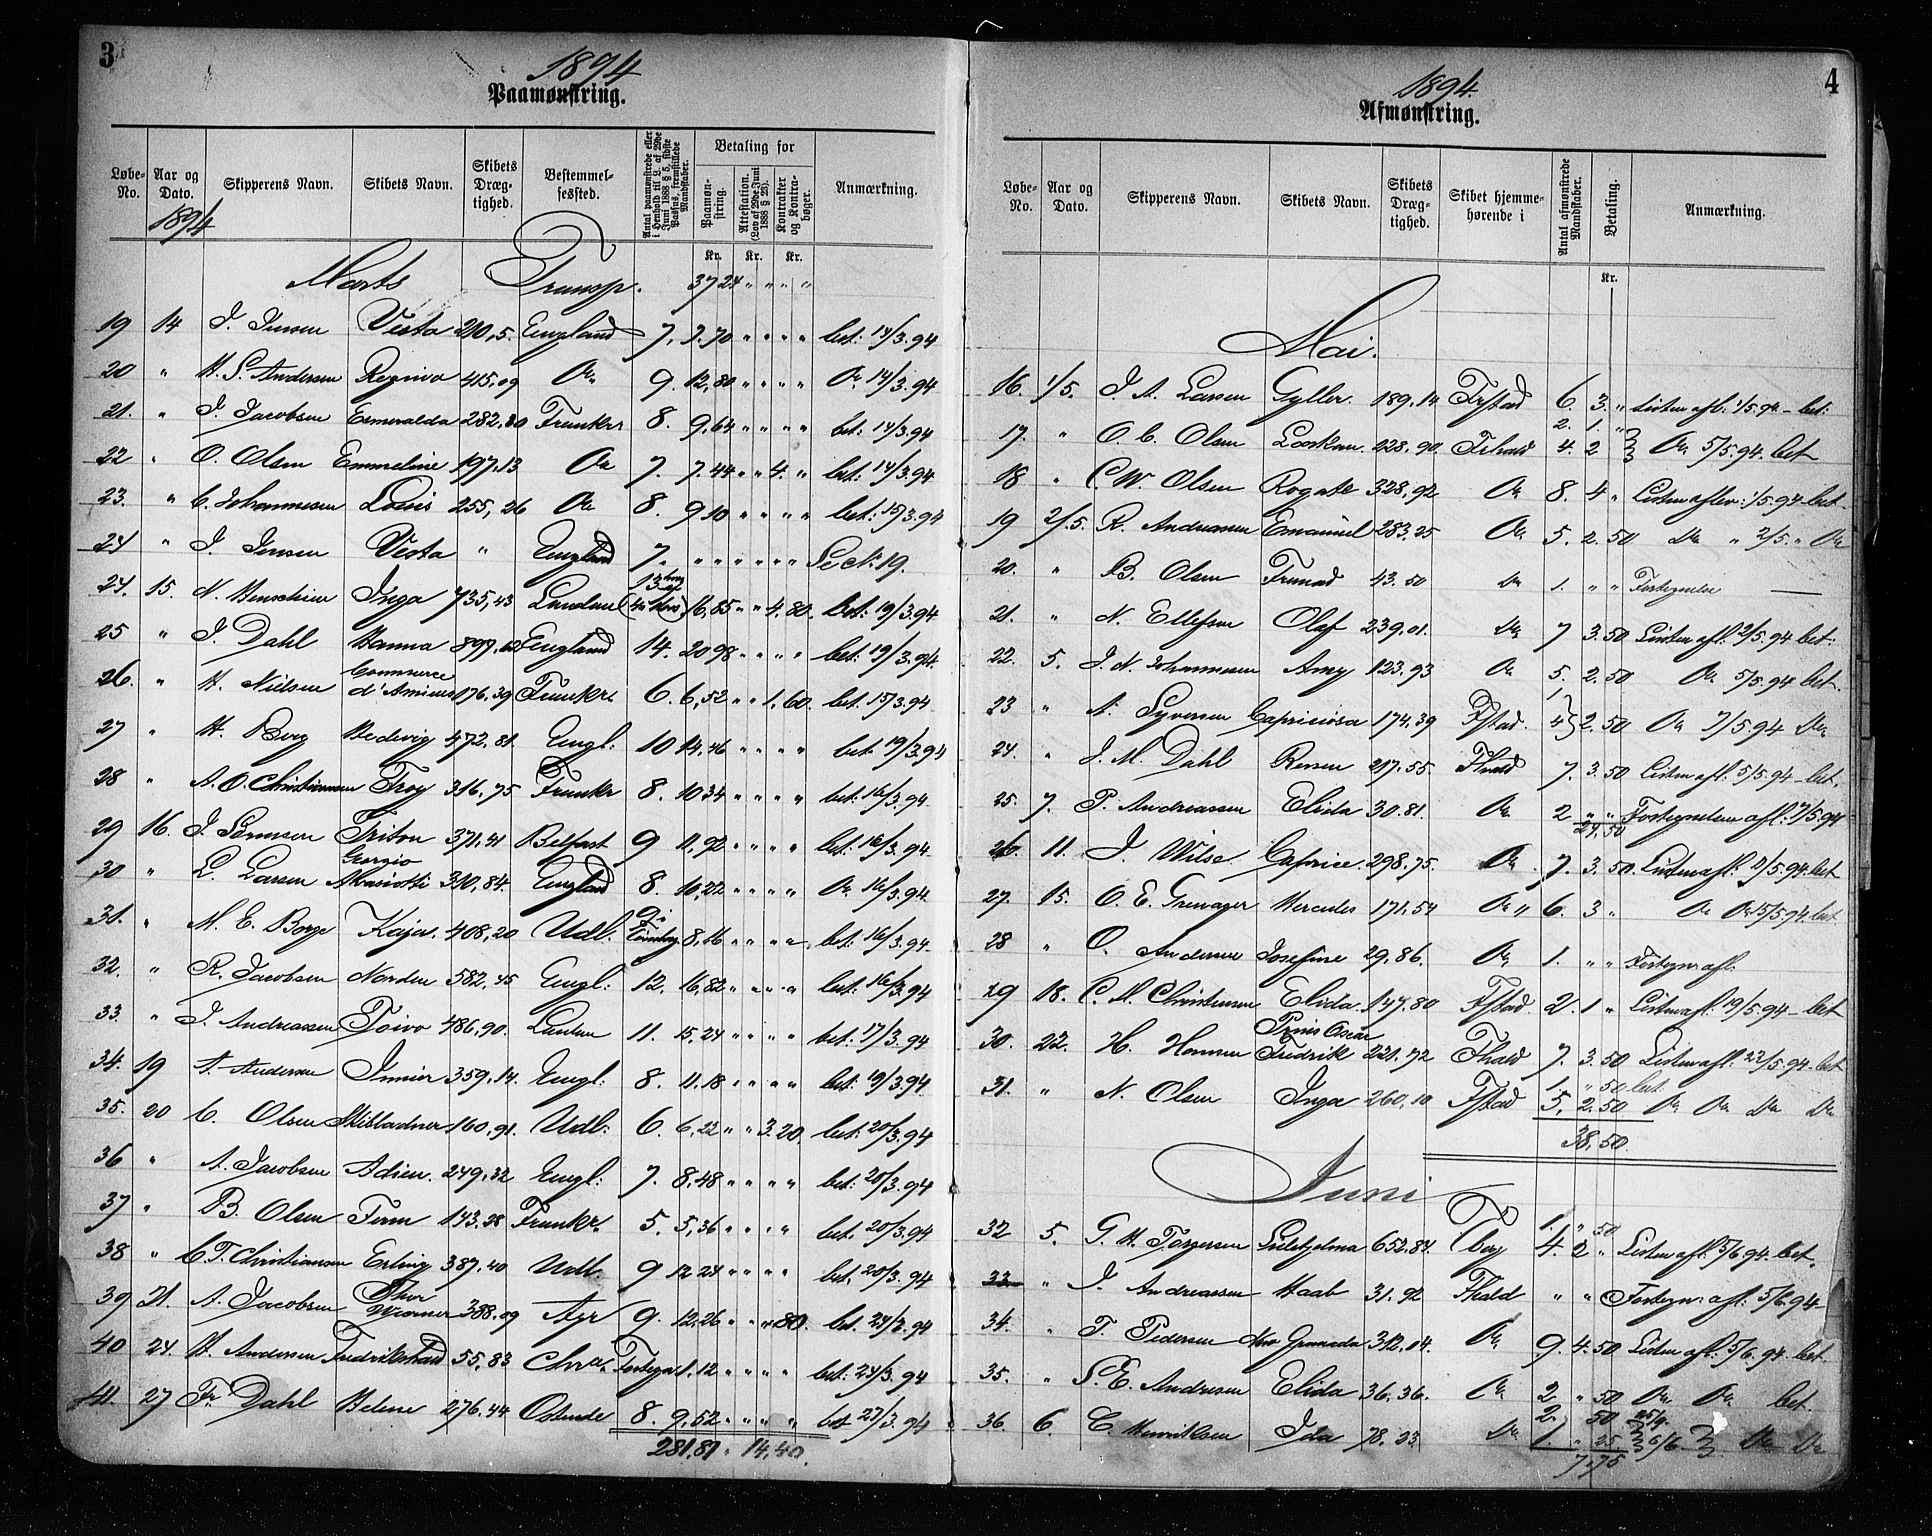 3
1894
Paamønstring.
Løbe-No. Aar og Dato. Skipperens Navn. Skibets Navn. Skibets Dræg-tighed. Bestemmel-sessted. Antal paamønstrede eller i Henhold til L. af 29de Juni 1888 § 5, sidste Passus, fremstillede Mandskaber. Betaling for Paamøn-string. Attestation. (Lov af 29de Juni 1888 § 23). Kontrakter og Kontra-bøger. Anmærkning.
1894
Kr. Kr. Kr.
Marts Transp. 37 24 " " " "
19 14 J. Jensen Vesta 210,5. England 7, 7.70 " " " " bet: 14/3.94
20 " H. S. Andersen Regina 415,09 Do 9. 12,80 " " " " Do 14/3.94
21. " J. Jacobsen Esmeralda 282,80 Frankr 8. 9,64 " " " " bet: 14/3.94
22 " O. Olsen Emmeline 197,13 Do 7. 7.44 " " 4. " bet: 14/3.94
23. " C. Johannessen Louis 255,26 Do 8. 9 10 " " " " bet: 15/3.94
24 " J. Jensen Vesta " England 7. " " " " " " Se No 19.
24. 15. N. Inga 735,43 13 16,85 " " 4.80. bet. 19/3.94
25 " J. Dahl Hanna 899,62 England 14. 20 98 " " " " bet: 19/3.94.
26. " H. Nielsen Commerce d'Amiens 176,39 Frankr. 6. 6,52 " " 1.60. bet. 15/3.94
27 " H. Berg Hedevig 472,81. Engl: 10 14.46 " " " " bet 19/3.94
28 " A. O. Christiansen Troy 316,75 Frankr 8. 10 34 " " " " bet: 16/3.94
29 16. J. Sørensen Triton 371,41 Belfast 9 11,92 " " " " bet: 16/3.94
30 " L. Larsen Georgio 310,84. England 8. 10,22 " " " " Do 16/3.94
31. " M. E. Borge Kaja. 408,20 Udl. 8,16 " " " " bet: 16/3.94
32. " R. Jacobsen Norden 582,45 Engl: 12. 16,82 " " " " bet: 16/3.94
33. " J. Andreassen Toivo 486,90. 11. 15,24 " " " " bet: 17/3.94
34. 19 A. Andersen 359,14. Engl: 8. 11.18 " " " " bet: 19/3.94
35. 20 C. Olsen Skibladner 160,91. Udl: 6. 6,22 " " 3.20. bet: 20/3.94
36 " A. Jacobsen Adien. 249,32 Engl: 7. 8,48 " " " " bet: 20/3.94
37 " B. Olsen Ferm 143,28 Frankr. 5. 5,36 " " " " bet. 20/3.94
38 " C. F. Christiansen Erling 387,40 Udl: 9 12 24 " " " " bet. 20/3.94
39 21. A. Jacobsen Thor 388,09 Ayr 9. 12.26 " " " 80. bet. 23/3.94
40 24. H. Andersen Fredrikstad 55,83 Chra. Fortegn. 1.12 " " " " bet: 23/3.94
41. 27 Fr. Dahl Helene 276,44 Ostende 8. 9.52 " " " " bet 27/3.94
281,87 " 14,40.
4
1894.
Afmønstring.
Løbe-No. Aar og Dato. Skipperens Navn. Skibets Navn. Skibets Dræg-tighed. Skibet hjemme-hørende i Antal afmønstrede Mandskaber. Betaling. Anmærkning.
Kr.
Mai.
16. 1/5. J. A. Larsen Gyller. 189,14 Frstad 6. 3. " Listen afl: 1/5.94 - bet:
17. " O. C. Olsen 228,90. Fhald 2. 1. " 4. 2 Do 5/5.94. bet
18 " C. W. Olsen Rogate 328,92 Do 8. 4 " Listen aflev: 1/5.94 - bet.
19 2/5. R. Andreassen Emanuel 283,25 Do 5. 2.50 Do " 2/5. " Do
20. " B. Olsen 43.50 Do 1. " " Fortegnelse
21. " N. Ellefsen Olaf 239.01. Do 7 3.50 Listen afl: 2/5.94 bet:
22. 5. J. N. Johannessen Amy 123.93 Do 5. 2.50 Do 5/5.94 bet.
23 " A. Syversen Capriciosa 174.39 Fstad. 1 4 2.50 Do 7/5.94 Do
24. " J. M. Dahl 217.55. Fhald 7. 3.50 Listen afl: 5/5.94 - bet.
25. 7. P. Andreassen Elida 30.81. Do 2 " " Fortegnelsen afl: 7/5.94
24.50
26. 11. J. Wilse. Caprice. 298,75. Do. 7. 3.50 Listen afl: 11/5.94. bet
27. 15. O. E. Grevager Hercules 171.54 Do " 6. 3 " Do Do 15/5.94. bet
28 " O. Andersen Josefine 29.86. Do 1. " " Fortegn: afl.
29 18. C. M. Christensen Elida 147.80 Fstad. 2. 1 " Listen afl: 19/5.94 - bet
30. 22. H. Hansen Prins Oscar Fredrik 221,72 Fhald 7. 3.50 Listen afl: 22/5.94 - bet
31. " N. Olsen Inga 260,10 Fstad 1. " 50 bet. 5. 2.50 Do Do Do Do
38,50.
Juni
32 5. G. H. Torgersen 652.84. Tberg 1. " 50 4. 2 " Listen afl: 5/6.94. bet.
33 " J. Andreassen Haab 31.92 Fhald " " Fortegn: afl: 5/6.94
34. " T. Pedersen Granada 312,04. Do 9. 4.50 Listen afl: 5/6.94. bet.
35. " S. E. Andresen Elida 36.36. Do 2. " 50 Do Do bet.
36. 6. C. Henriksen Ida 78.23 Do 2. 50 25/4. 1. " 25. 6/6. Do Do
7,75